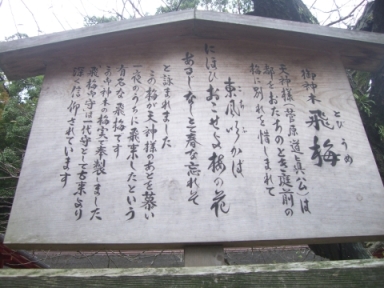 御神木 飛梅
とび うめ
天神様(菅原道真公)は
都をおたちのとき庭前の
梅に別れを惜しまれて
東風吹かば
にほひおこせよ梅の花
あるじなしとて春な忘れそ
と詠まれました
この梅が天神様のあとを慕い
一夜のうちに飛来したという
有名な飛梅です
この神木の梅実で奉製しました
飛梅の守は一代守として古来より
深く信仰されています